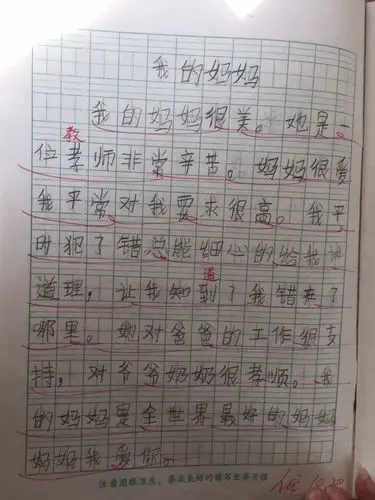 我的妈妈
我的妈妈很美。她是一
教
位孝师非常辛苦。妈妈很爱
我平常对我要求很高。我平
时犯了错总能细心的给我讲
道
道理，让我知到了我错在了
哪里。她对爸爸的工作很支
持，对爷爷奶奶很孝顺。我
的妈妈是全世界最好的妈妈
妈妈我爱你。
注意用眼卫生，养成良好的读写坐姿习惯
10.20